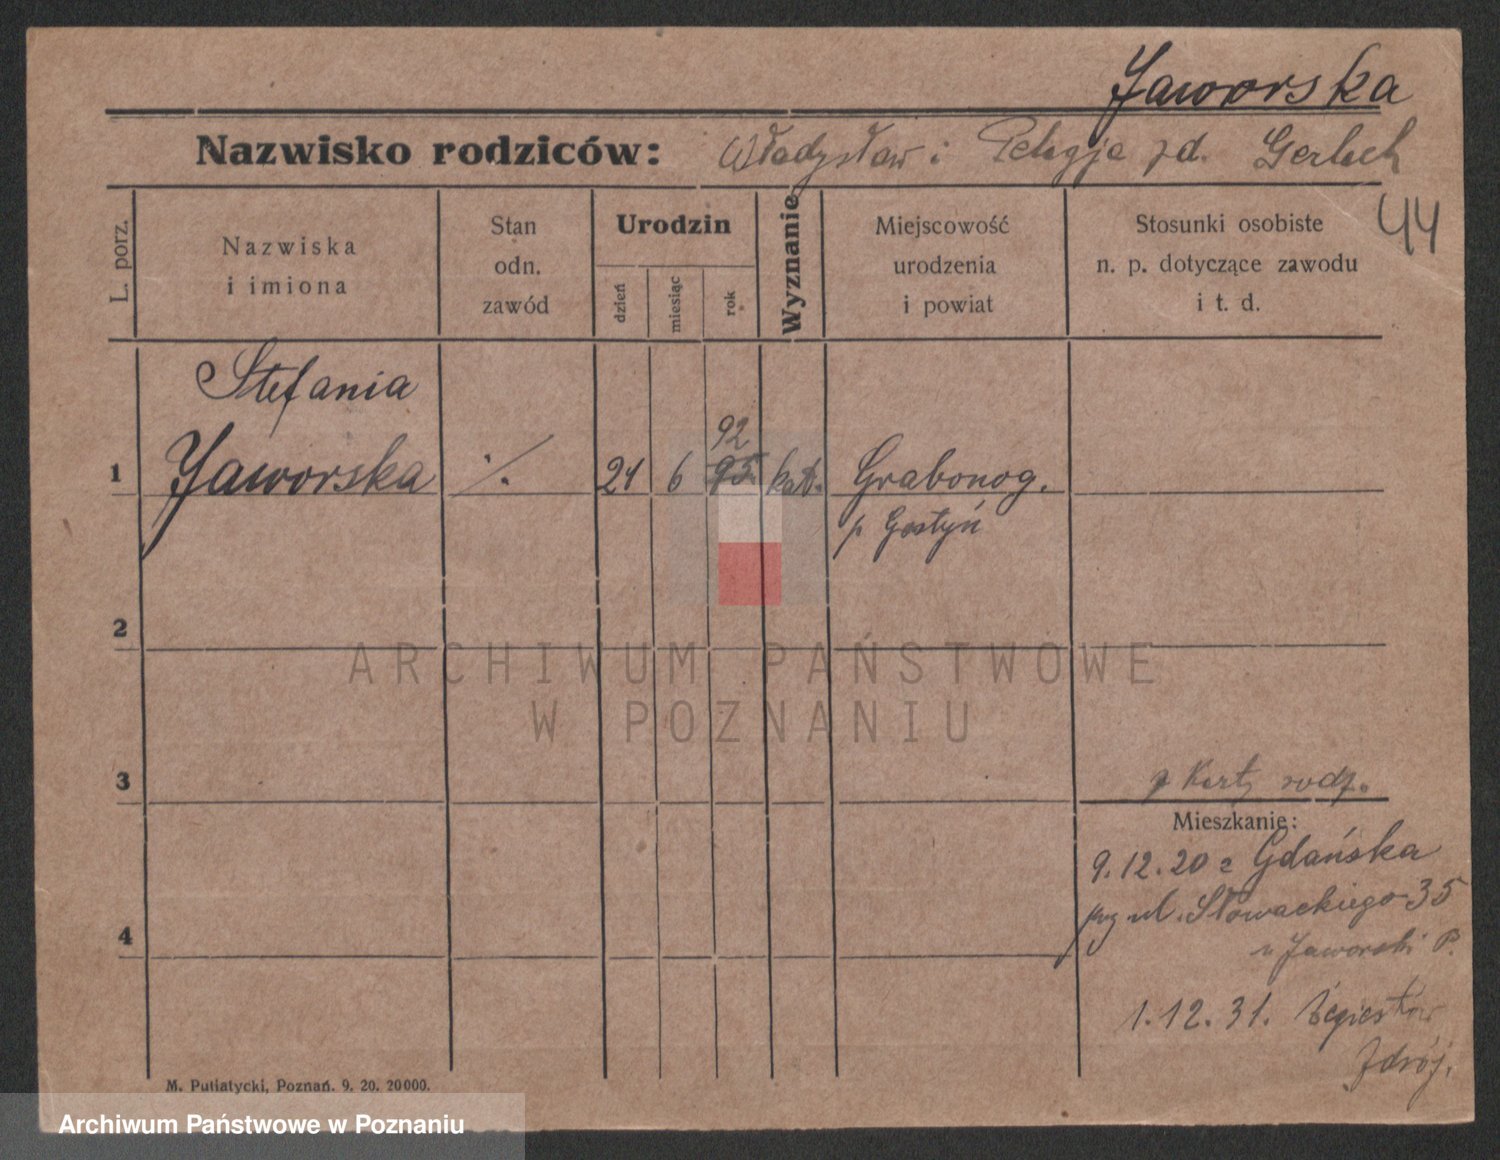 Jaworska
Nazwisko rodziców: Władysław i Pelagja zd. Gerlach
44
L. porz.
Nazwiska
i imiona
Stan
odn.
zawód
Urodzin
dzień
miesiąc
rok
Wyznanie
Miejscowość
urodzenia
i powiat
Stosunki osobiste
n. p. dotyczące zawodu
i t. d.
Stefania
92
1 Jaworska ./. 21 6 95 kat. Grabonog.
p Gostyń
2
ARCHIWUM PAŃSTWOWE
W POZNANIU
3
z Karty rodz.
Mieszkanie:
9.12.20 z Gdańska
ul. Słowackiego 35
4
u Jaworski P.
1.12.31. Żegiestów
Zdrój.
M. Putiatycki, Poznań. 9. 20. 20000.
Archiwum Państwowe w Poznaniu